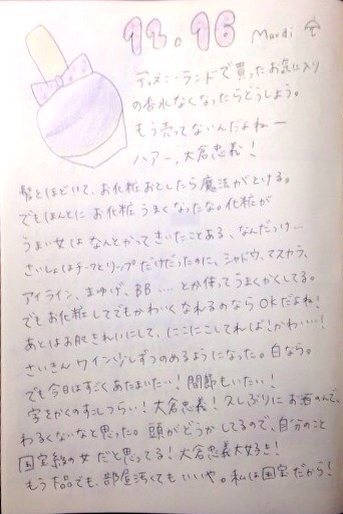 12.16 Mardi
ディズニーランドで買ったお気に入り
の香水なくなったらどうしよう。
もう売ってないんだよねー
ハアー、大倉忠義!
髪をほどいて、お化粧おとしたら魔法がとける。
でもほんとに お化粧 うまくなったな。化粧が
うまい女は なんとかって きいたことある、なんだっけ…
さいしょはチークとリップだけだったのに、シャドウ、マスカラ、
アイライン、まゆげ、BB …. とか使ってうまくかくしてる。
でもお化粧してでもかわいくなれるのなら OKだよね!
あとはお肌きれいにして、にこにこしてれば!かわいい!
さいきん ワイン少しずつのめるようになった。白なら。
でも今日はすごくあたまいたい! 関節もいたい!
字をかくのすこしつらい!大倉忠義!久しぶりにお酒のんで、
わるくないなと思った。頭がどうかしてるので、自分のこと
国宝級の女だと思ってる!大倉忠義大好き!
もう でも、部屋汚くてもいいや。私は国宝だから!